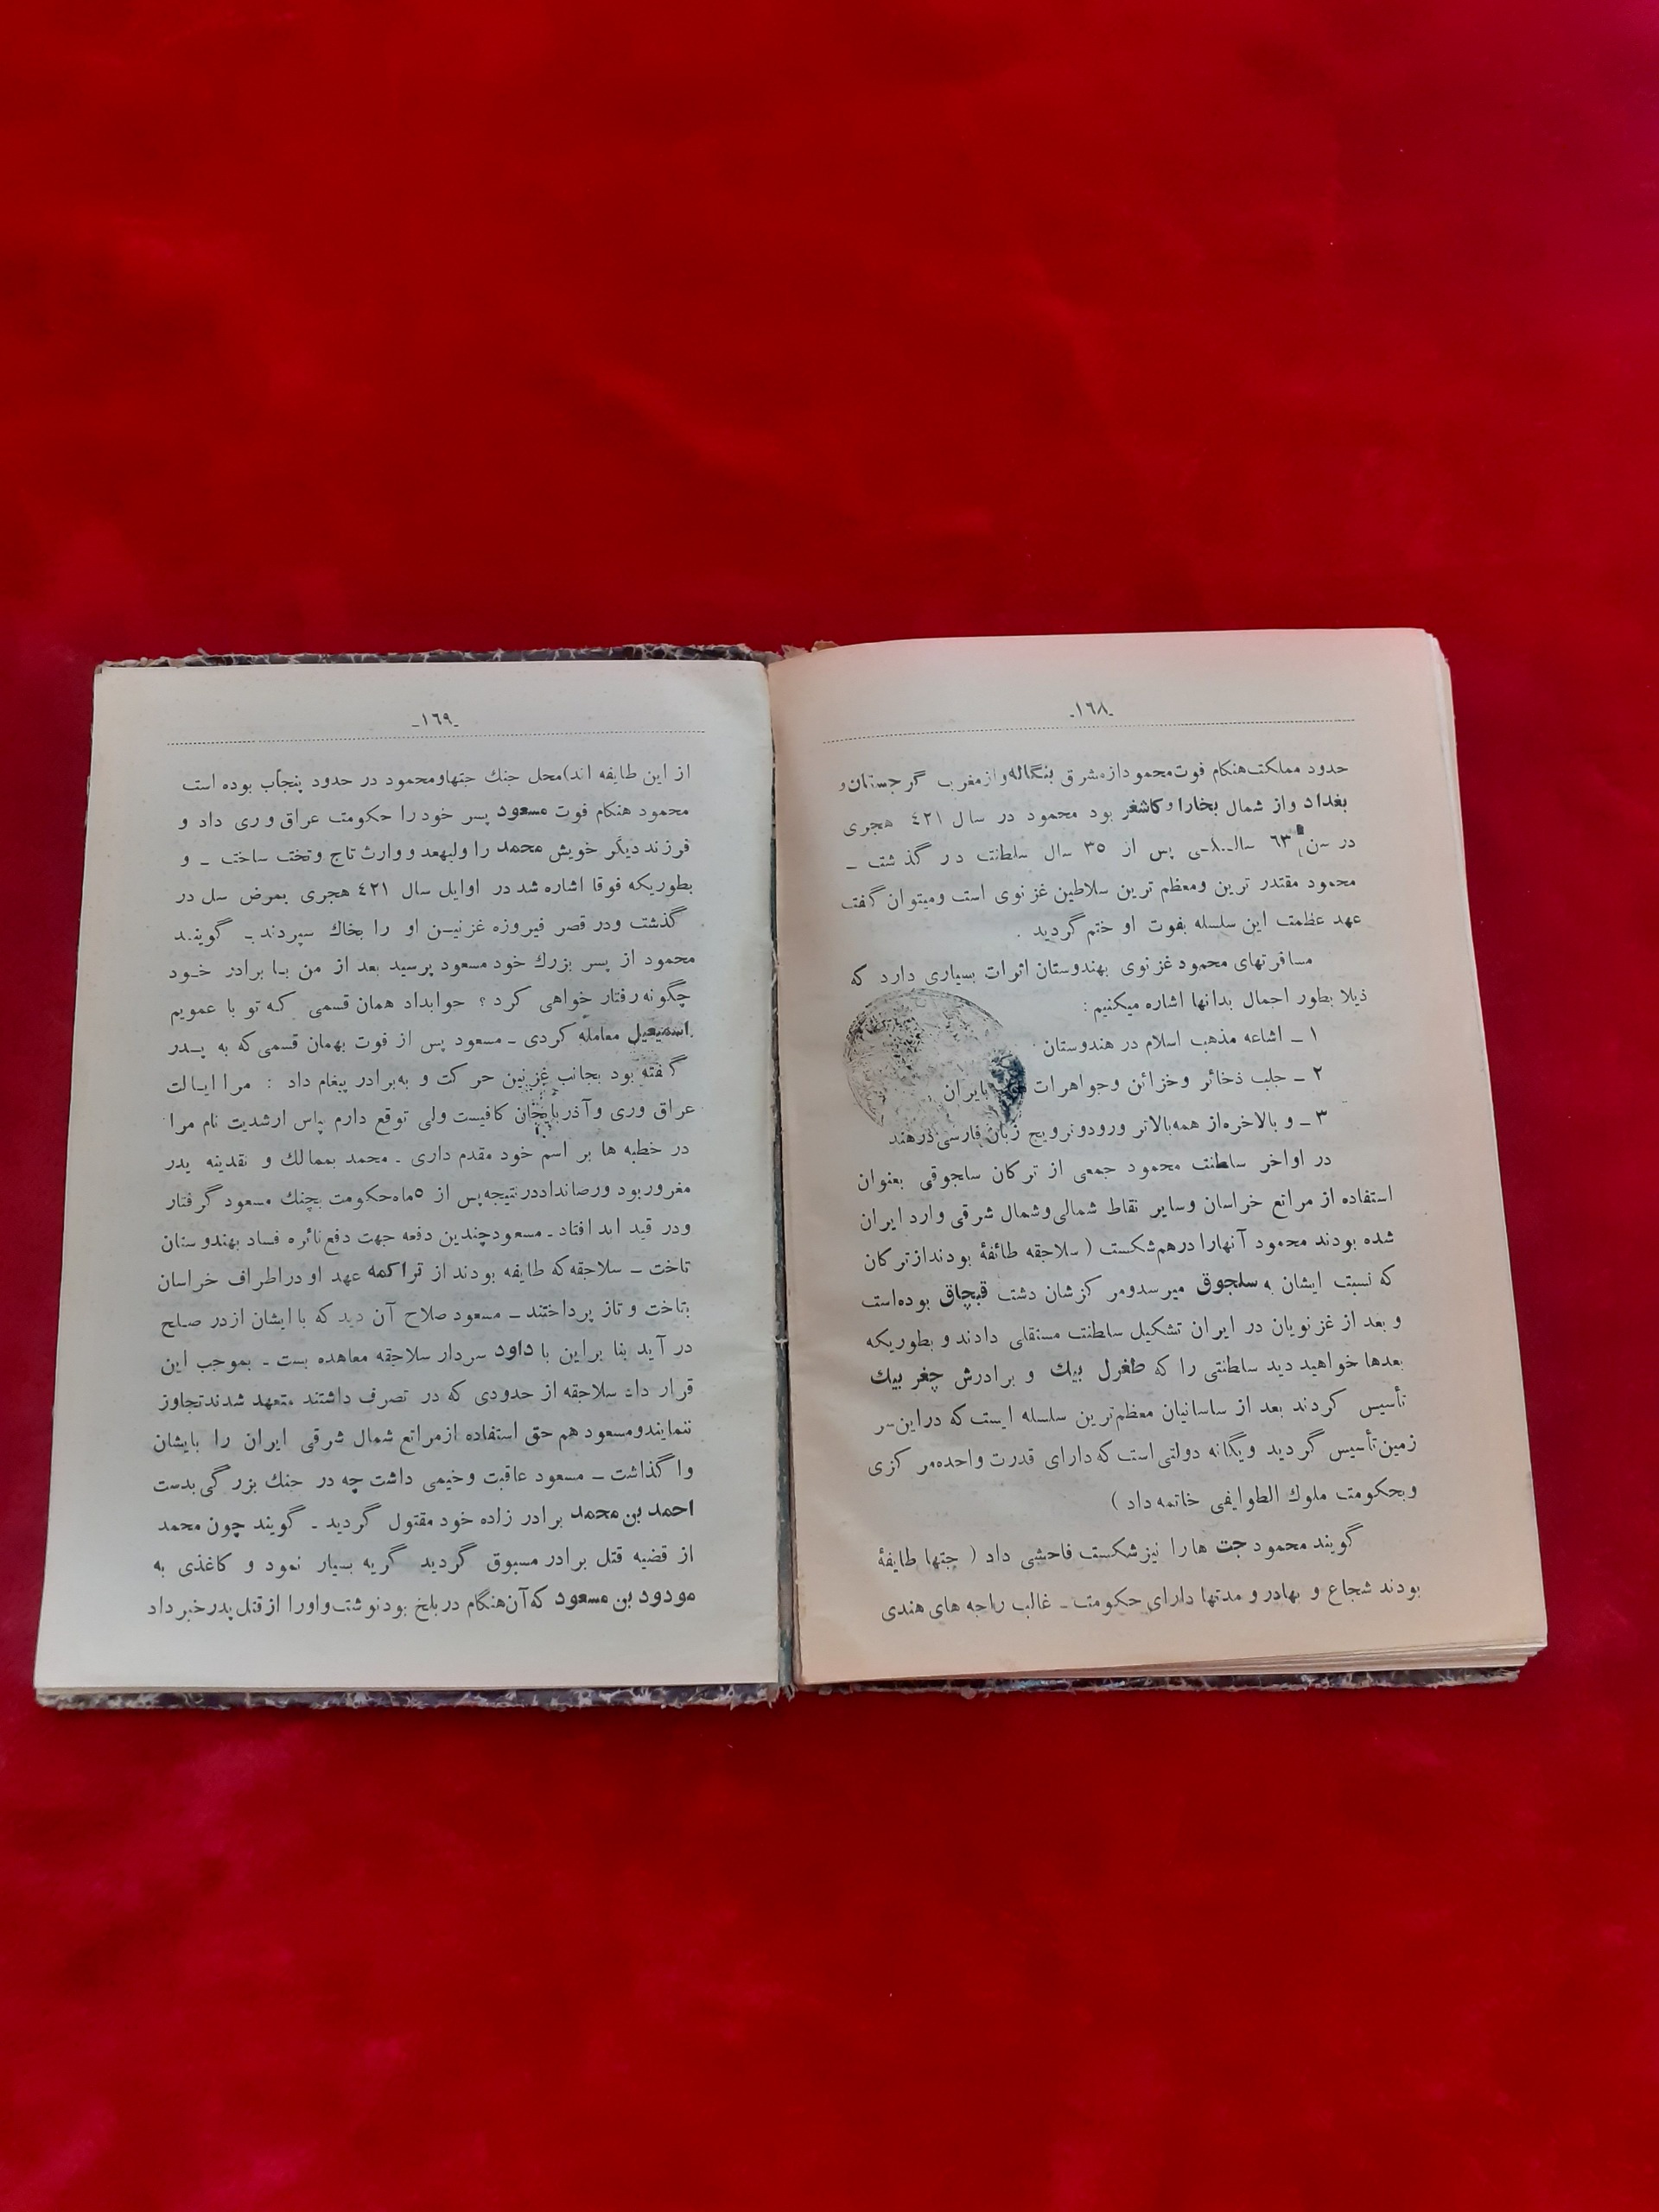 -۱٦۸-
حدود مملکت هنگام فوت محمود از مشرق بنگاله و از مغرب گرجستان و
بغداد و از شمال بخارا و کاشغر بود محمود در سال ٤۲۱ هجری
در سن ٦۳ سالگی پس از ۳٥ سال سلطنت در گذشت ـ
محمود مقتدر ترین ومعظم ترین سلاطین غزنوی است ومیتوان گفت
عهد عظمت این سلسله بفوت او ختم گردید .
مسافرتهای محمود غزنوی بهندوستان اثرات بسیاری دارد که
ذیلا بطور اجمال بدانها اشاره میکنیم :
۱ ـ اشاعه مذهب اسلام در هندوستان
۲ ـ جلب ذخائر وخزائن وجواهرات بایران
۳ ـ و بالاخره از همه بالاتر ورود و ترویج زبان فارسی در هند
در اواخر سلطنت محمود جمعی از ترکان سلجوقی بعنوان
استفاده از مراتع خراسان وسایر نقاط شمالی وشمال شرقی وارد ایران
شده بودند محمود آنهارا درهم شکست ( سلاجقه طائفۀ بودند از ترکان
که نسبت ایشان به سلجوق میرسد و مرکزشان دشت قبچاق بوده است
و بعد از غزنویان در ایران تشکیل سلطنت مستقلی دادند و بطوریکه
بعدها خواهید دید سلطنتی را که طغرل بیك و برادرش چغر بیك
تأسیس کردند بعد از ساسانیان معظم‌ترین سلسله ایست که در این سر
زمین تأسیس گردید ویگانه دولتی است که دارای قدرت واحده مرکزی
وبحکومت ملوك الطوایفی خاتمه داد )
گویند محمود جت هارا نیز شکست فاحشی داد ( جتها طایفۀ
بودند شجاع و بهادر و مدتها دارای حکومت ـ غالب راجه های هندی
-۱٦۹-
از این طایفه اند) محل جنك جتها و محمود در حدود پنجاب بوده است
محمود هنکام فوت مسعود پسر خود را حکومت عراق و ری داد و
فرزند دیگر خویش محمد را ولیهعد و وارث تاج وتخت ساخت ـ و
بطوریکه فوقا اشاره شد در اوایل سال ٤۲۱ هجری بمرض سل در
گذشت ودر قصر فیروزه غزنیـن او را بخاك سپردند ـ گوینـد
محمود از پسر بزرك خود مسعود پرسید بعد از من بـا برادر خـود
چگونه رفتار خواهی کرد ؟ جوابداد همان قسمی کـه تو با عمویم
اسمعیل معامله کردی ـ مسعود پس از فوت بهمان قسمی که به پـدر
گفته بود بجانب غزنین حرکت و به برادر پیغام داد : مرا ایـالت
عراق وری و آذربایجان کافیست ولی توقع دارم بپاس ارشدیت نام مرا
در خطبه ها بر اسم خود مقدم داری ـ محمد بممالك و نقدینه پدر
مغرور بود و رضا نداد در نتیجه پس از ٥ ماه حکومت بچنك مسعود گرفتار
ودر قید ابد افتاد ـ مسعود چندین دفعه جهت دفع نائره فساد بهندوستان
تاخت ـ سلاجقه که طایفه بودند از تراکمه عهد او در اطراف خراسان
بتاخت و تاز پرداختند ـ مسعود صلاح آن دید که با ایشان از در صـلح
در آید بنا براین با داود سردار سلاجقه معاهده بست ـ بموجب این
قرار داد سلاجقه از حدودی که در تصرف داشتند متعهد شدند تجاوز
ننمایند و مسعود هم حق استفاده از مراتع شمال شرقی ایران را بایشان
واگذاشت ـ مسعود عاقبت وخیمی داشت چه در جنك بزرگی بدست
احمد بن محمد برادر زاده خود مقتول گردید ـ گویند چون محمد
از قضیه قتل برادر مسبوق گردید گریه بسیار نمود و کاغذی به
مودود بن مسعود که آن هنگام در بلخ بود نوشت و اورا از قتل پدر خبر داد